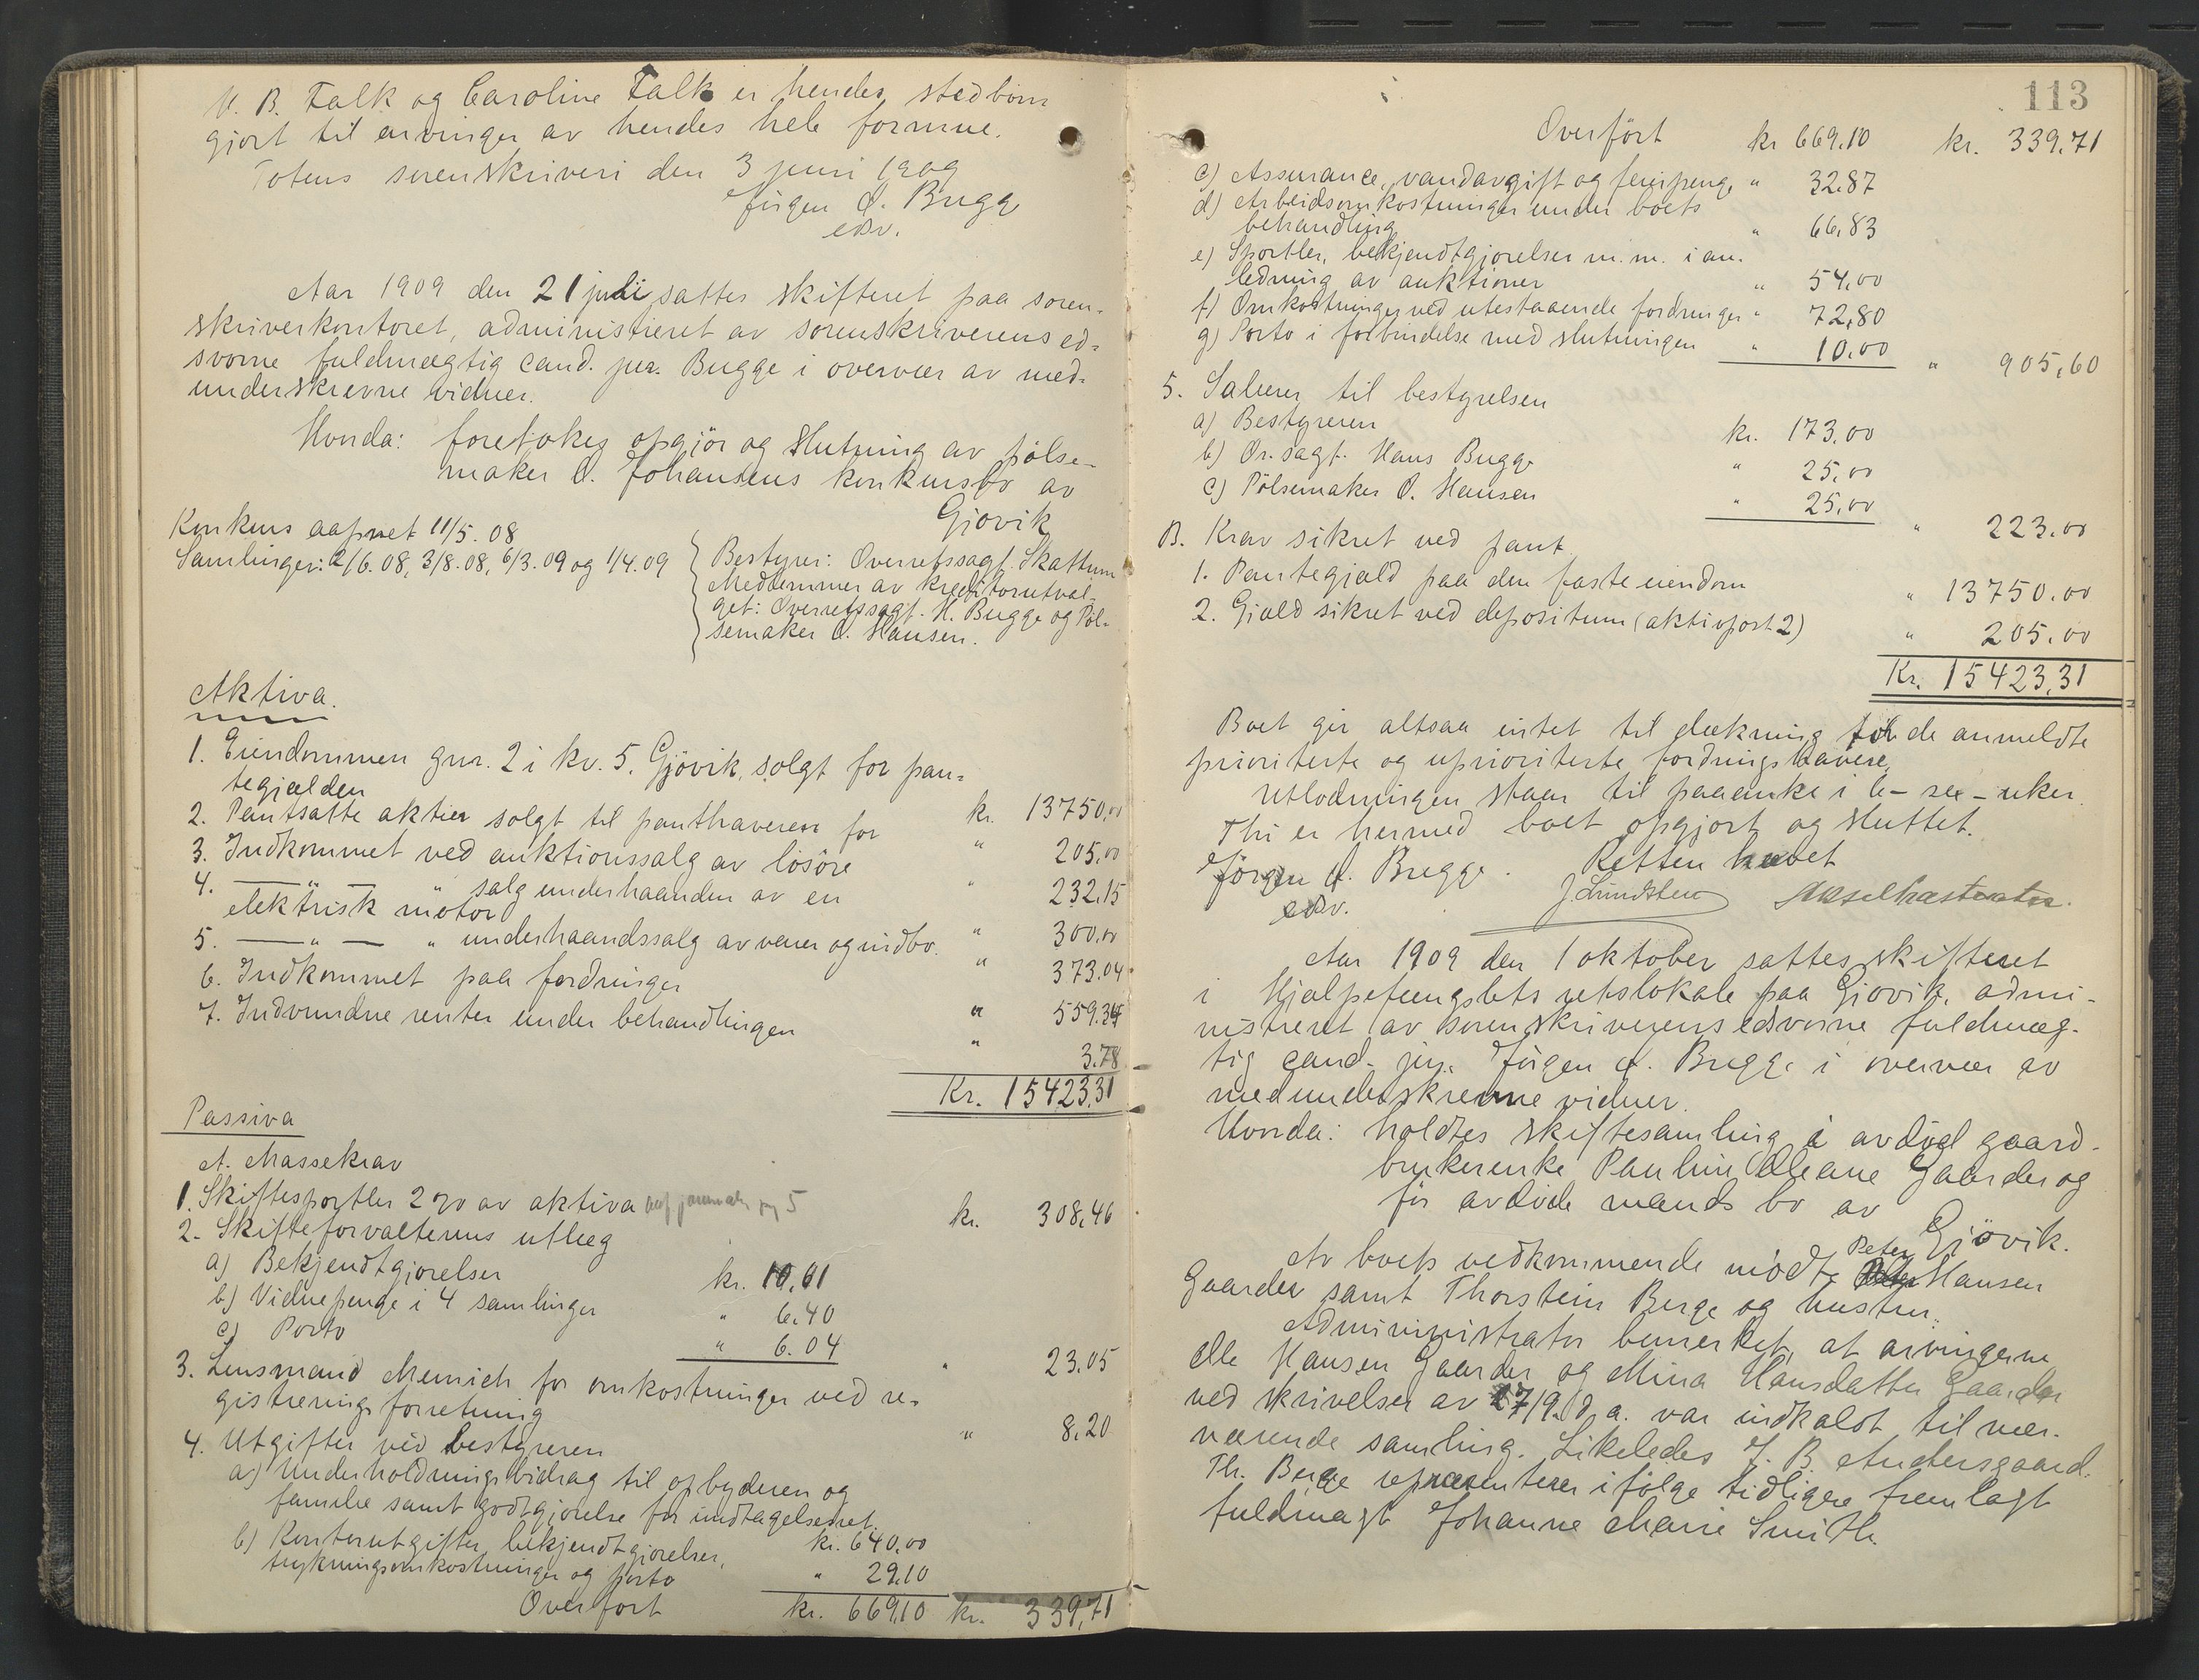 V. B. Falk og Caroline Falk er hendes stedbörn
gjort til arvinger av hendes hele formue.
Totens sorenskriveri den 3 juni 1909
Jörgen A. Bugge
edsv.
Aar 1909 den 21 juli sattes skifteret paa soren-
skriverkontoret, administreret av sorenskriverens ed-
svorne fuldmægtig cand. jur. Bugge i overvær av med-
underskrevne vidner.
Hvorda: foretokes opgjör og slutning av pölse-
maker O. Johansens konkursbo av
Gjövik
Konkurs aapnet 11/5.08
Samlinger: 2/6.08, 3/8.08, 6/3.09 og 1/4.09
Bestyrer: Overretssagf. Skattum
Medlemmer av kreditorutval-
get: Overretssagf. H. Bugge og Pöl-
semaker O. Hansen.
Aktiva.
1. Eiendommen gnr. 2 i kv. 5. Gjövik, solgt for pan-
tegjælden kr. 13750,00
2. Pantsatte aktier solgt til panthaveren for " 205,00
3. Indkommet ved auktionssalg av lösöre " 232,15
4. — " — " salg underhaanden av en
elektrisk motor " 300,00
5. — " — " underhaandssalg av varer og indbo. " 373.04
6. Indkommet paa fordringer " 559.34
7. Indvundne renter under behandlingen " 3.78
Kr. 15423,31
Passiva
A. Massekrav
1. Skiftesportler 2 % av aktiva kr. 308,46
2. Skifteforvalterens utlæg
a) Bekjendtgjörelser kr. 10,61
b) Vidnepenge i 4 samlinger " 6.40
c) Porto " 6.04 " 23.05
3. Lensmand Memich for omkostninger ved re-
gistreringsforretning " 8,20
4. Utgifter ved bestyreren
a) Underholdningsbidrag til opbyderen og
familie samt godtgjörelse for indtagelsesret. kr. 640,00
b) Kontorutgifter, bekjendtgjörelser,
trykningsomkostninger og porto " 29,10
Overfört kr. 669,10 kr. 339,71
113
Overfört kr 669.10 kr. 339,71
c) Assurance, vandavgift og feierpenge " 32,87
d) Arbeidsomkostninger under boets
behandling " 66,83
e) Sportler, bekjendtgjörelser m.m. i an-
ledning av auktioner " 54,00
f) Omkostninger ved utestaaende fordringer " 72,80
g) Porto i forbindelse med slutningen " 10.00 " 905,60
5. Salærer til bestyrelsen
a) Bestyreren kr. 173,00
b) Or.sagf. Hans Bugge " 25,00
c) Pölsemaker O. Hansen " 25,00 " 223.00
B. Krav sikret ved pant
1. Pantegjæld paa den faste eiendom " 13750.00
2. Gjæld sikret ved depositum (aktivpost 2) " 205.00
Kr. 15423,31
Boet gir altsaa intet til dækning for de anmeldte
prioriterte og uprioriterte fordringshavere.
Utlodningen staar til paaanke i 6 - sex - uker.
Thi er hermed boet opgjort og sluttet.
Retten hævet
Jörgen A. Bugge. J. Lundsten
edsv.
Aar 1909 den 1 oktober sattes skifteret
i Hjælpefængslets retslokale paa Gjövik, admi-
nistreret av sorenskriverens edsvorne fuldmæg-
tig cand. jur. Jörgen A. Bugge i overvær av
medunderskrevne vidner.
Hvorda: holdtes skiftesamling i avdöd gaard-
brukerenke Pauline Oleane Gaarder og
för avdöde mands bo av
Gjövik.
Av boets vedkommende mödte Peter Hansen
Gaarder samt Thorstein Berge og hustru.
Administrator bemerket, at arvingerne
Ole Hansen Gaarder og Mina Hansdatter Gaarder
ved skrivelser av 27/9. d.a. var indkaldt til nær-
værende samling. Likeledes J. B. Andersgaard.
Th. Berge repræsenterer ifölge tidligere fremlagt
fuldmagt Johanne Marie Smith.